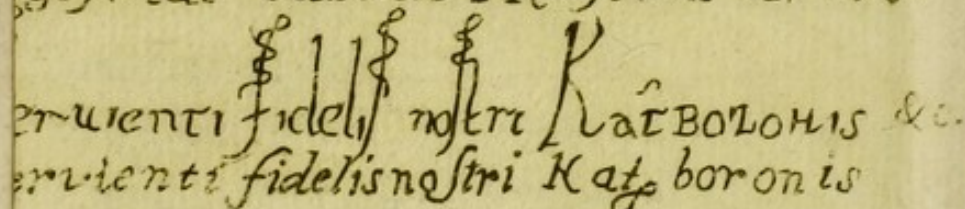 ervienti fidelis nostri Kat̄boronis &c.
ervienti fidelis nostri Katboronis